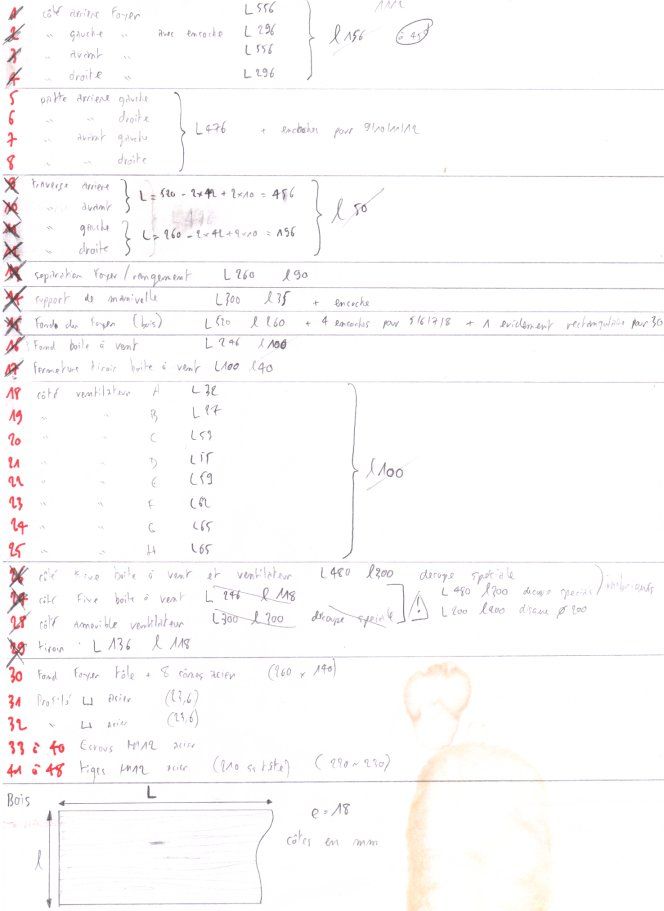 1 côté arrière Foyer L 556
2 " gauche " avec encoche L 296 l 156 à 45°
3 " avant " L 556
4 " droite " L 296
5 patte arrière gauche
6 " " droite
7 " avant gauche L 476 + encoches pour 9/10/11/12
8 " " droite
9 traverse arrière L = 520 - 2x42 + 2x10 = 456
10 " avant l 50
11 " gauche L = 260 - 2x42 + 2x10 = 196
12 " droite
13 séparation Foyer/rangement L 260 l 90
14 support de manivelle L 300 l 35 + encoche
15 Fond du Foyer (bois) L 520 l 260 + 4 encoches pour 5/6/7/8 + 1 évidement rectangulaire pour 30
16 Fond boîte à vent L 246 l 100
17 Fermeture tiroir boîte à vent L 100 l 40
18 côté ventilateur A L 32
19 " " B L 27
20 " " C L 59
21 " " D L 15
22 " " E L 59
23 " " F L 62
24 " " G L 65
25 " " H L 65
l 100
26 côté Fixe boîte à vent et ventilateur L 480 l 200 découpe spéciale
27 côté Fixe boîte à vent L 246 l 118 L 480 l 200 découpe spéciale
28 côté amovible ventilateur L 300 l 200 découpe spéciale L 200 l 200 disque ø 200
29 tiroir L 136 l 118
30 Fond Foyer tôle + 8 acier (260 x 140)
31 Profilé ⊔ acier (23,6)
32 " ⊔ acier (23,6)
33 à 40 Ecrous M12 acier
41 à 48 tiges M12 acier
Bois L
e = 18
l côtes en mm